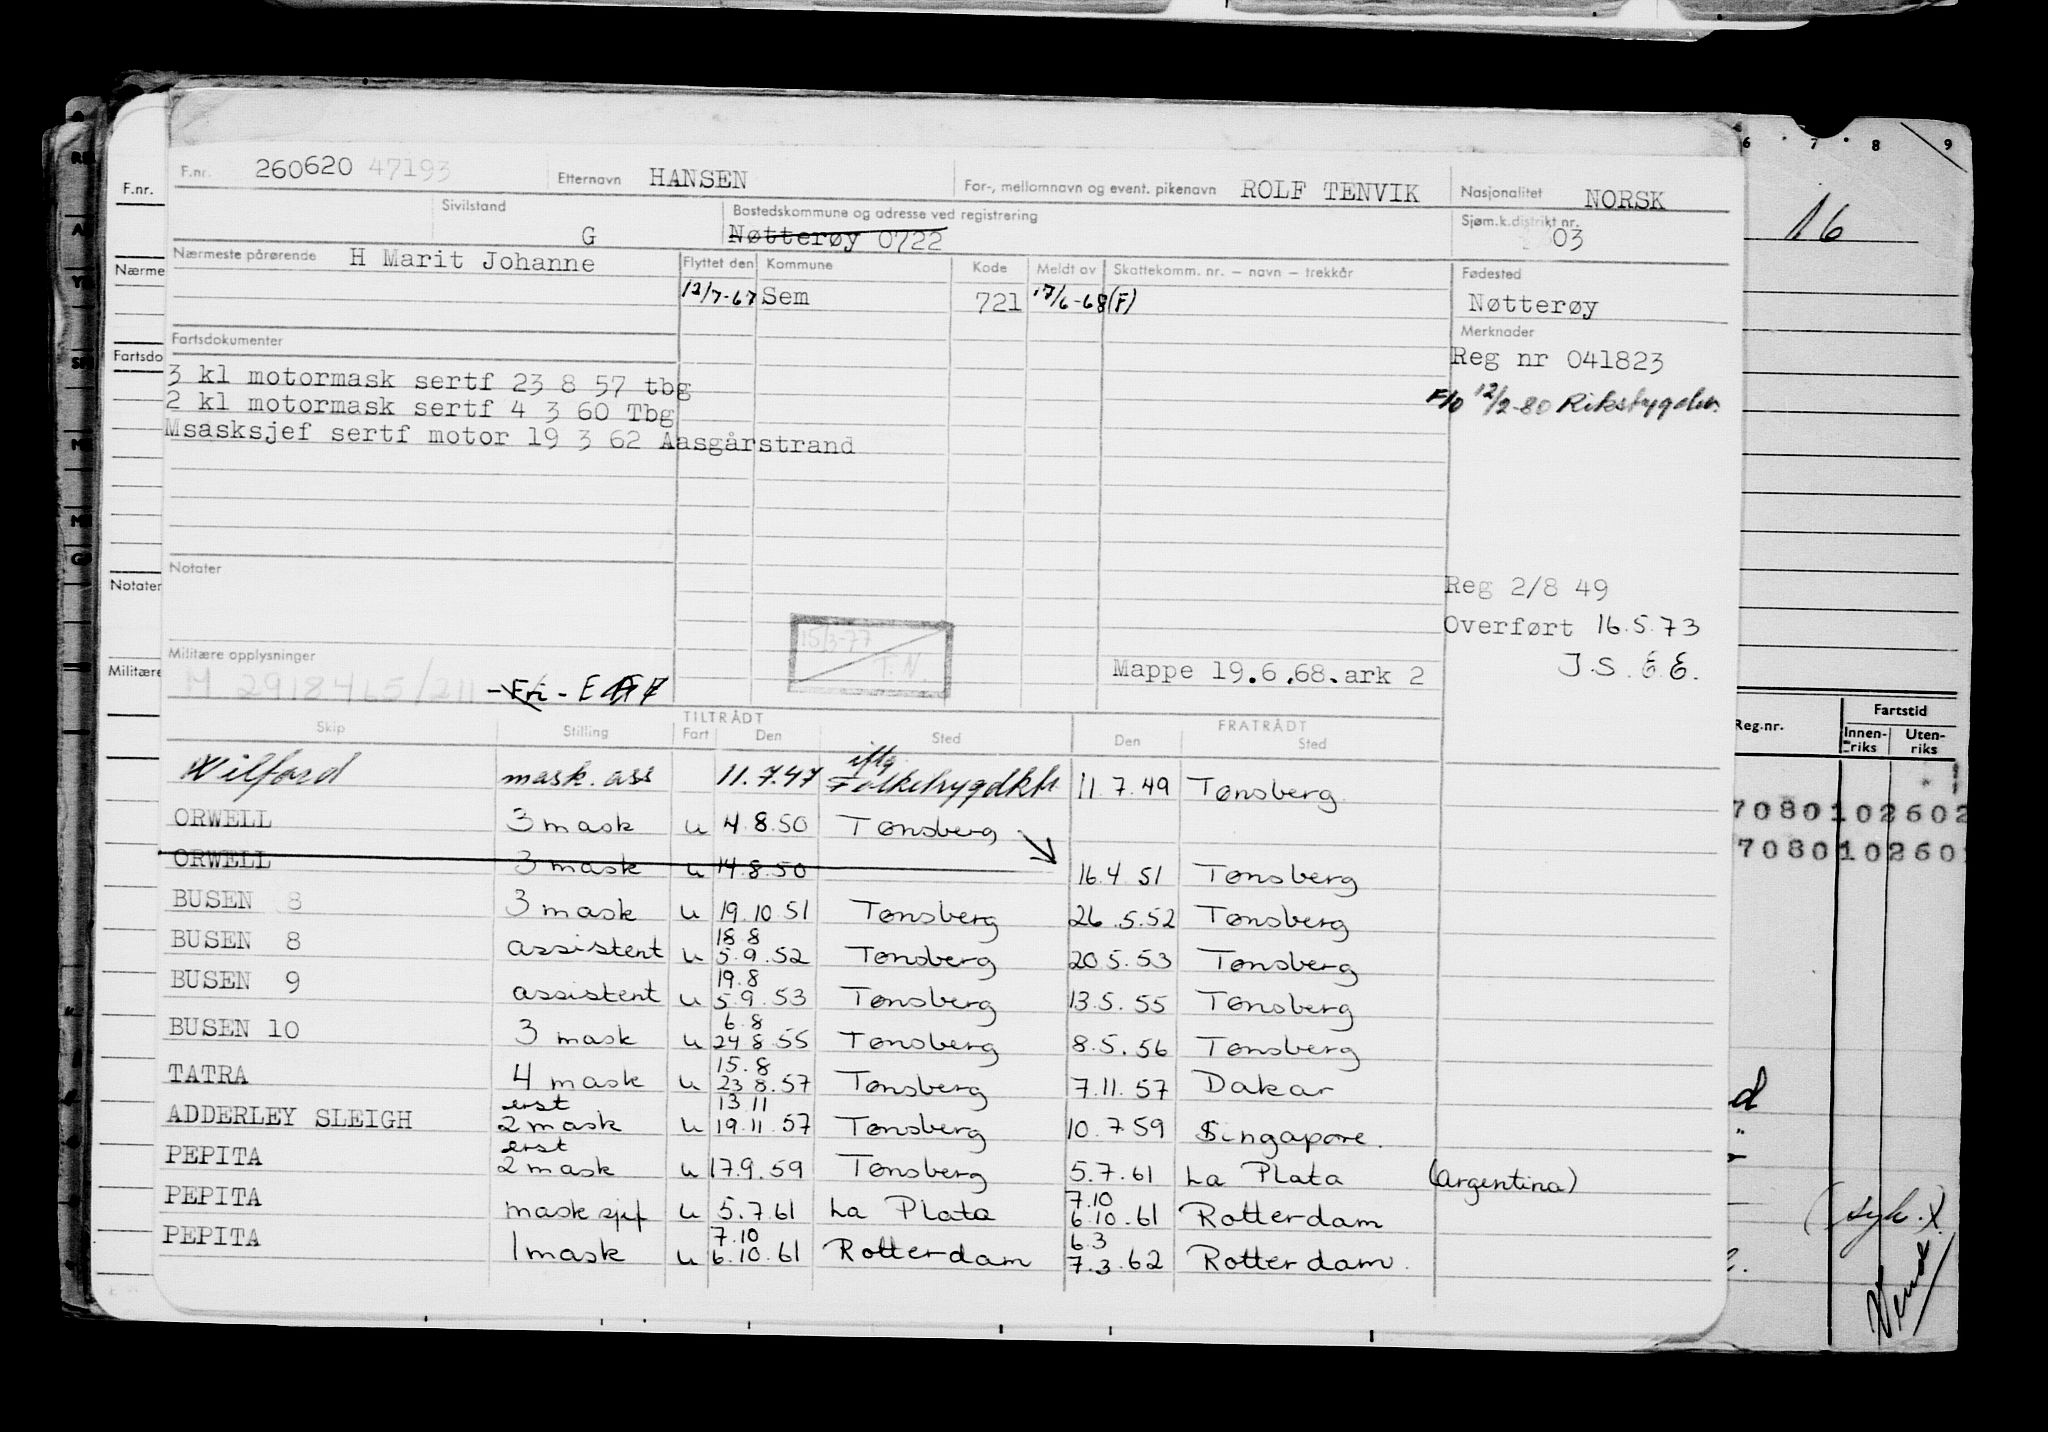 F.nr. 260620 47193 Etternavn HANSEN For-, mellomnavn og event. pikenavn ROLF TENVIK Nasjonalitet NORSK
Sivilstand G Bostedskommune og adresse ved registrering Nøtterøy 0722 Sjøm.k.distrikt nr. 03
Nærmeste pårørende H Marit Johanne Flyttet den Kommune Kode Meldt av Skattekomm. nr. – navn – trekkår Fødested
12/7-67 Sem 721 17/6-68 (F) Nøtterøy
Merknader
Fartsdokumenter Reg nr 041823
3 kl motormask sertf 23 8 57 tbg F/o 12/2-80 Rikstrygdev.
2 kl motormask sertf 4 3 60 Tbg
Msasksjef sertf motor 19 3 62 Aasgårstrand
Notater Reg 2/8 49
15/3-77 T.N. Overført 16.5.73
Militære opplysninger Mappe 19.6.68.ark 2 J.S.E.E.
M 2918465/211 - Fri -
TILTRÅDT FRATRÅDT
Skip Stilling Fart Den Sted Den Sted
Wilford mask. ass 11.7.47 iflg. Folketrygdktr. 11.7.49 Tønsberg
ORWELL 3 mask u 4.8.50 Tønsberg
ORWELL 3 mask u 14.8.50 16.4.51 Tønsberg
BUSEN 8 3 mask u 19.10.51 Tønsberg 26.5.52 Tønsberg
18 8
BUSEN 8 assistent u 5.9.52 Tønsberg 20.5.53 Tønsberg
19.8
BUSEN 9 assistent u 5.9.53 Tønsberg 13.5.55 Tønsberg
6.8
BUSEN 10 3 mask u 24 8.55 Tønsberg 8.5.56 Tønsberg
15.8
TATRA 4 mask u 23 8.57 Tønsberg 7.11.57 Dakar
erst 13 11
ADDERLEY SLEIGH 2 mask u 19.11.57 Tønsberg 10.7.59 Singapore.
erst
PEPITA 2 mask u 17.9.59 Tønsberg 5.7.61 La Plata (Argentina)
7.10
PEPITA mask sjef u 5.7.61 La Plata 6.10.61 Rotterdam
7.10 6.3
PEPITA 1 mask u 6.10.61 Rotterdam 7.3.62 Rotterdam.
F.nr.
Nærme
Fartsdo
Notater
Militære
6 7 8 9
16
Reg.nr. Fartstid
Innen-riks Uten-riks
7080102602
708010260
(syk.)